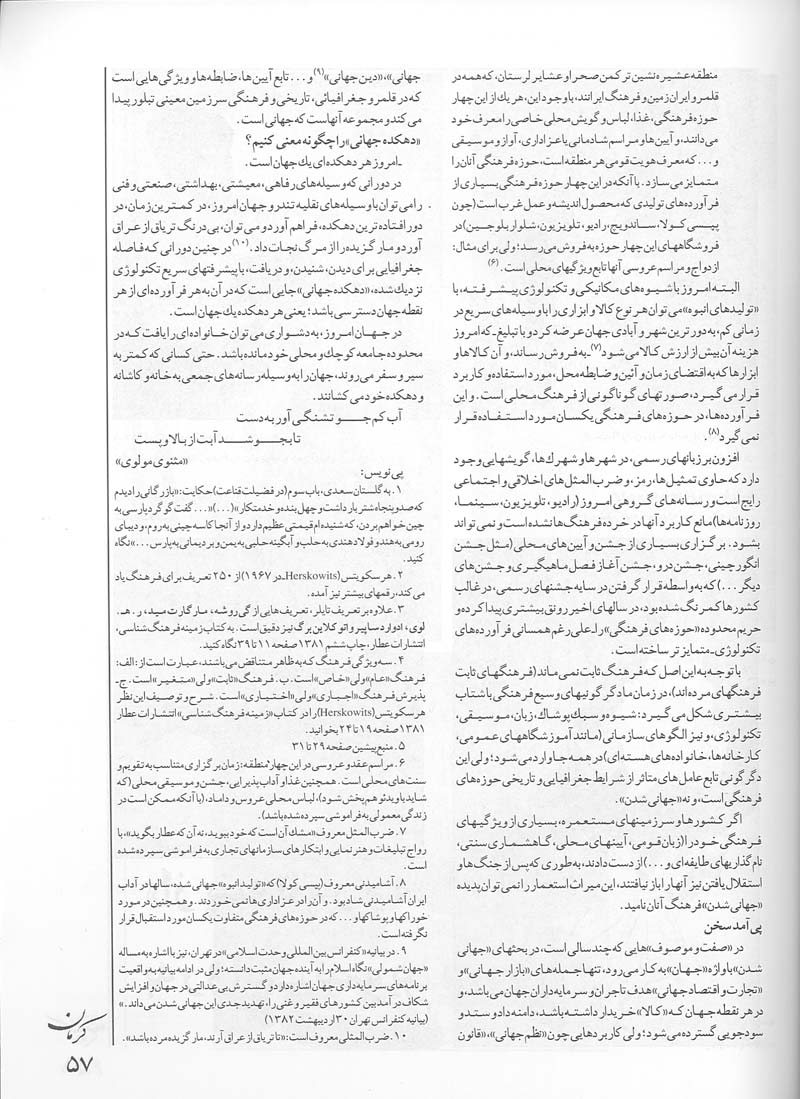 منطقه عشیره نشین ترکمن صحرا و عشایر لرستان، که همه در
قلمرو ایران زمین و فرهنگ ایرانند، با وجود این، هر یک از این چهار
حوزه فرهنگی، غذا، لباس و گویش محلی خاصی را معرف خود
می‌دانند، و آیین‌ها و مراسم شادمانی یا عزاداری، آواز و موسیقی
و ... که معرف هویت قومی هر منطقه است، حوزه فرهنگی آنان را
متمایز می‌سازد. با آنکه در این چهار حوزه فرهنگی بسیاری از
فرآورده‌های تولیدی که محصول اندیشه و عمل غرب است (چون
پپسی کولا، ساندویچ، رادیو، تلویزیون، شلوار بلوجین) در
فروشگاههای این چهار حوزه به فروش می‌رسد؛ ولی برای مثال:
ازدواج و مراسم عروسی آنها تابع ویژگیهای محلی است.(۶)
البته امروز با شیوه‌های مکانیکی و تکنولوژی پیشرفته، با
«تولیدهای انبوه» می‌توان هر نوع کالا و ابزاری را با وسیله‌های سریع در
زمانی کم، به دور ترین شهر و آبادی جهان عرضه کرد و با تبلیغ-که امروز
هزینه آن بیش از ارزش کالا می‌شود(۷)-به فروش رساند، و آن کالاها و
ابزارها که به اقتضای زمان و آئین و ضابطه محل، مورد استفاده و کاربرد
قرار می‌گیرد، صورتهای گوناگونی از فرهنگ محلی است. و این
فرآورده‌ها، در حوزه‌های فرهنگی یکسان مورد استفاده قرار
نمی‌گیرد(۸).
افزون بر زبانهای رسمی، در شهرها و شهرك‌ها، گویشهایی وجود
دارد که حاوی تمثیل‌ها، رمز، و ضرب المثل‌های اخلاقی و اجتماعی
رایج است و رسانه‌های گروهی امروز (رادیو، تلویزیون، سینما،
روزنامه‌ها) مانع کاربرد آنها در خرده فرهنگ‌ها نشده است و نمی‌تواند
بشود. برگزاری بسیاری از جشن و آیین‌های محلی (مثل جشن
انگورچینی، جشن درو، جشن آغاز فصل ماهیگیری و جشن‌های
دیگر ...) که به واسطه قرار گرفتن در سایه جشنهای رسمی، در غالب
کشورها کمرنگ شده بود، در سالهای اخیر رونق بیشتری پیدا کرده و
حریم محدوده «حوزه‌های فرهنگی» را-علی رغم همسانی فرآورده‌های
تکنولوژی-متمایز تر ساخته است.
با توجه به این اصل که فرهنگ ثابت نمی‌ماند (فرهنگهای ثابت
فرهنگهای مرده‌اند)، در زمان ما دگرگونیهای وسیع فرهنگی با شتاب
بیشتری شکل می‌گیرد: شیوه و سبك پوشاك، زبان، موسیقی،
تکنولوژی، و نیز الگوهای سازمانی (مانند آموزشگاههای عمومی،
کارخانه‌ها، خانواده‌های هسته‌ای) در همه جا وارد می‌شود؛ ولی این
دگرگونی تابع عامل‌های متاثر از شرایط جغرافیایی و تاریخی حوزه‌های
فرهنگی است، و نه «جهانی شدن».
اگر کشورها و سرزمینهای مستعمره، بسیاری از ویژگیهای
فرهنگی خود را (زبان قومی، آیینهای محلی، گاهشماری سنتی،
نام‌گذاریهای طایفه‌ای و ...) از دست دادند، به طوری که پس از جنگ‌ها و
استقلال یافتن نیز آنها را باز نیافتند، این میراث استعمار را نمی‌توان پدیده
«جهانی شدن» فرهنگ آنان نامید.
پی آمد سخن
در «صفت و موصوف»هایی که چند سالی است، در بحثهای «جهانی
شدن» با واژه «جهان» به کار می‌رود، تنها جمله‌های «بازار جهانی» و
«تجارت و اقتصاد جهانی» هدف تاجران و سرمایه داران جهان می‌باشد، و
در هر نقطه جهان که «کالا» خریدار داشته باشد، دامنه داد و ستد و
سودجویی گسترده می‌شود؛ ولی کاربردهایی چون «نظم جهانی»، «قانون
جهانی»، «دین جهانی»(۹) و ... تابع آیین‌ها، ضابطه‌ها و ویژگی‌هایی است
که در قلمرو جغرافیائی، تاریخی و فرهنگی سرزمین معینی تبلور پیدا
می‌کند و مجموعه آنهاست که جهانی است.
«دهکده جهانی» را چگونه معنی کنیم؟
-امروز هر دهکده‌ای یك جهان است.
در دورانی که وسیله‌های رفاهی، معیشتی، بهداشتی، صنعتی و فنی
را می‌توان با وسیله‌های نقلیه تندرو جهان امروز، در کمترین زمان، در
دور افتاده ترین دهکده، فراهم آورد و می‌توان، بی درنگ تریاق از عراق
آورد و مار گزیده را از مرگ نجات داد.(۱۰) در چنین دورانی که فاصله
جغرافیایی برای دیدن، شنیدن، و دریافت، با پیشرفتهای سریع تکنولوژی
نزدیك شده، «دهکده جهانی» جایی است که در آن به هر فرآورده‌ای از هر
نقطه جهان دسترسی باشد؛ یعنی هر دهکده یك جهان است.
در جهان امروز، به دشواری می‌توان خانواده‌ای را یافت که در
محدوده جامعه کوچك و محلی خود مانده باشد. حتی کسانی که کمتر به
سیر و سفر می‌روند، جهان را به وسیله رسانه‌های جمعی به خانه و کاشانه
و دهکده خود می‌کشانند.
آب کم جو تشنگی آور به دست
تا بجوشد آبت از بالا و پست
«مثنوی مولوی»
پی نویس:
۱. به گلستان سعدی، باب سوم (در فضیلت قناعت) حکایت: «بازرگانی را دیدم
که صد و پنجاه شتر بار داشت و چهل بنده و خدمتکار» (...) «... گفت گوگرد پارسی به
چین خواهم بردن، که شنیده‌ام قیمتی عظیم دارد و از آنجا کاسه چینی به روم، و دیبای
رومی به هند و فولاد هندی به حلب و آبگینه حلبی به یمن و برد یمانی به پارس ...» نگاه
کنید.
۲. هر سکویتس (Herskowits-در ۱۹۶۷) از ۲۵۰ تعریف برای فرهنگ یاد
می‌کند، رقمهای بیشتر نیز آمده.
۳. علاوه بر تعریف تایلر، تعریف‌هایی از گی روشه، مارگارت مید، ر. هـ.
لوی، ادوارد ساپیر و اتو کلاین برگ نیز دقیق است. به کتاب زمینه فرهنگ شناسی،
انتشارات عطار، چاپ ششم ۱۳۸۱ صفحه ۱۱ تا ۳۹ نگاه کنید.
۴. سه ویژگی فرهنگ که به ظاهر متناقض می‌باشند، عبارت است از: الف:
فرهنگ «عام» ولی «خاص» است. ب. فرهنگ «ثابت» ولی «متغیر» است. ج-
پذیرش فرهنگ «اجباری» ولی «اختیاری» است. شرح و توصیف این نظر
هر سکویتس (Herskowits) را در کتاب «زمینه فرهنگ شناسی» انتشارات عطار
۱۳۸۱ صفحه ۱۹ تا ۲۴ بخوانید.
۵. منبع پیشین صفحه ۲۹ تا ۳۱
۶. مراسم عقد و عروسی در این چهار منطقه: زمان برگزاری متناسب به تقویم و
سنت‌های محلی است. همچنین غذا و آداب پذیرایی، جشن و موسیقی محلی (که
شاید با ویدئو هم پخش شود)، لباس محلی عروس و داماد، (با آنکه ممکن است در
زندگی معمولی به فراموشی سپرده شده باشد).
۷. ضرب المثل معروف «مشك آن است که خود ببوید، نه آن که عطار بگوید»، با
رواج تبلیغات و هنرنمایی و ابتکارهای سازمانهای تجاری به فراموشی سپرده شده
است.
۸. آشامیدنی معروف (پپسی کولا) که «تولید انبوه» جهانی شده، سالها در آداب
ایران آشامیدنی شاد بود. و آن را در عزاداری‌ها نمی‌خوردند. و همچنین در مورد
خوراکها و پوشاکها و ... که در حوزه‌های فرهنگی متفاوت یکسان مورد استقبال قرار
نگرفته است.
۹. در بیانیه «کنفرانس بین المللی وحدت اسلامی» در تهران، نیز با اشاره به مساله
«جهان شمولی» نگاه اسلام را به آینده جهان مثبت دانسته؛ ولی در ادامه بیانیه به واقعیت
برنامه‌های سرمایه داری جهان اشاره دارد و گسترش بی عدالتی در جهان و افزایش
شکاف در آمد بین کشورهای فقیر و غنی را، تهدید جدی این جهانی شدن می‌داند.»
(بیانیه کنفرانس تهران ۳۰ اردیبهشت ۱۳۸۲)
۱۰. ضرب المثلی معروف است: «تا تریاق از عراق آرند، مار گزیده مرده باشد».
کرمان
۵۷